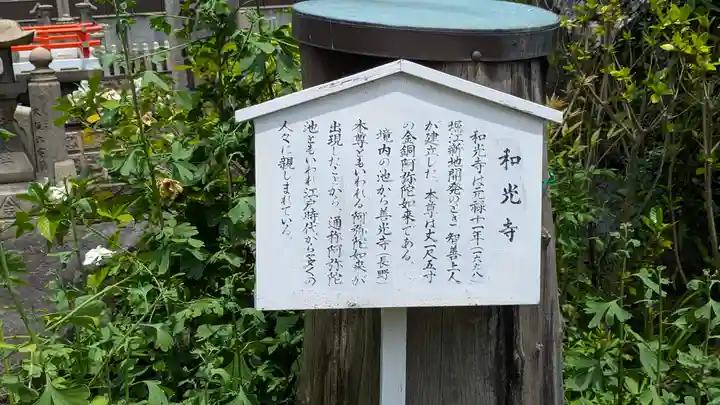 和光寺
和光寺は元禄十一年（一六九八）
堀江新地開発のとき 智善上人
が建立した。本尊は丈一尺五寸
の金銅阿弥陀如来である。
境内の池から善光寺（長野）
本尊ともいわれる阿弥陀如来が
出現したことから、通称阿弥陀
池ともいわれ江戸時代から多くの
人々に親しまれている。